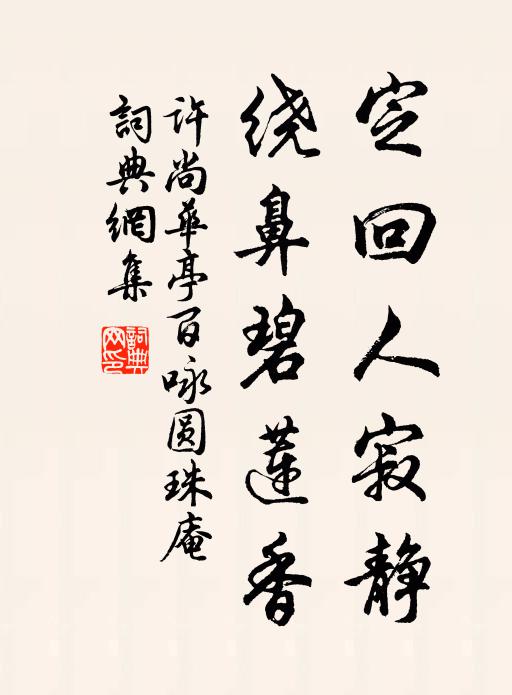 定回人寂静
绕鼻碧莲香
许尚华亭百咏圆珠庵
詞典網集
詞典网印